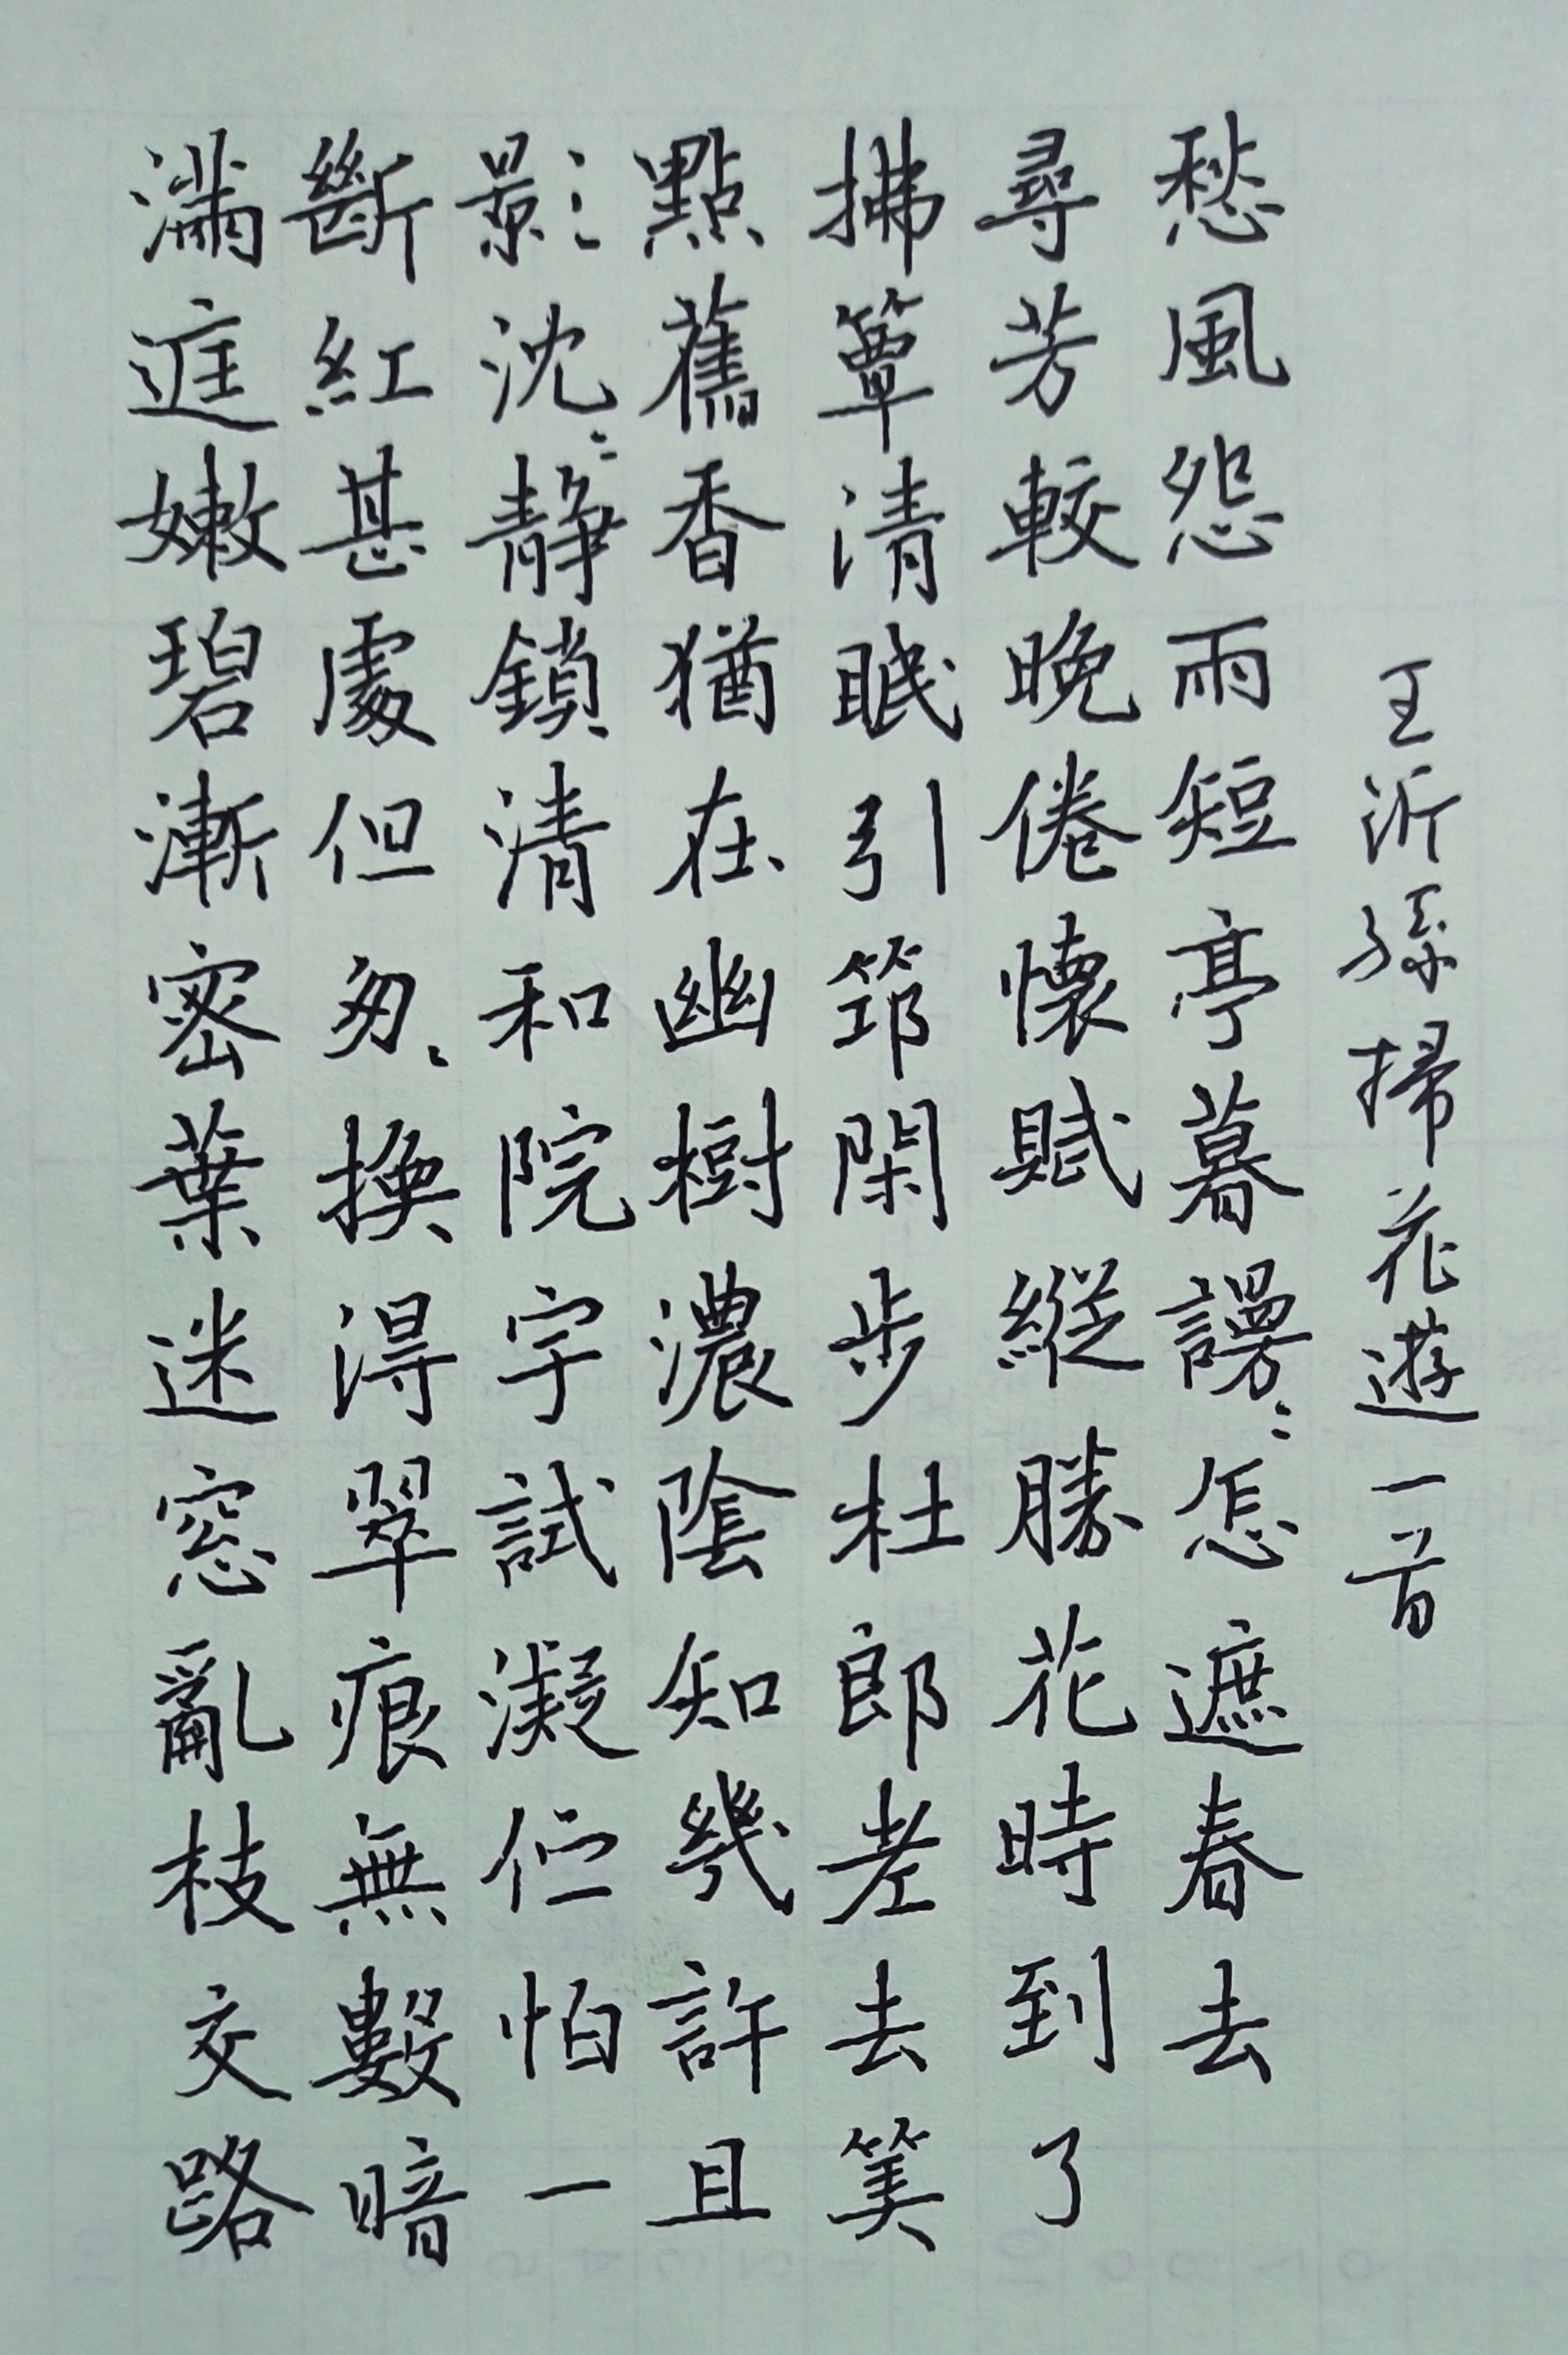 滿庭嫩碧漸密葉迷窓亂枝交路
斷紅甚處但匆〻換得翠痕無數暗
影沈〻靜鎖清和院宇試凝佇怕一
點舊香猶在幽樹濃陰知幾許且
拂簟清眠引筇閑步杜郎老去算
尋芳較晚倦懷賦縱勝花時到了
愁風怨雨短亭暮謾〻怎遮春去
王沂孫掃花遊一首